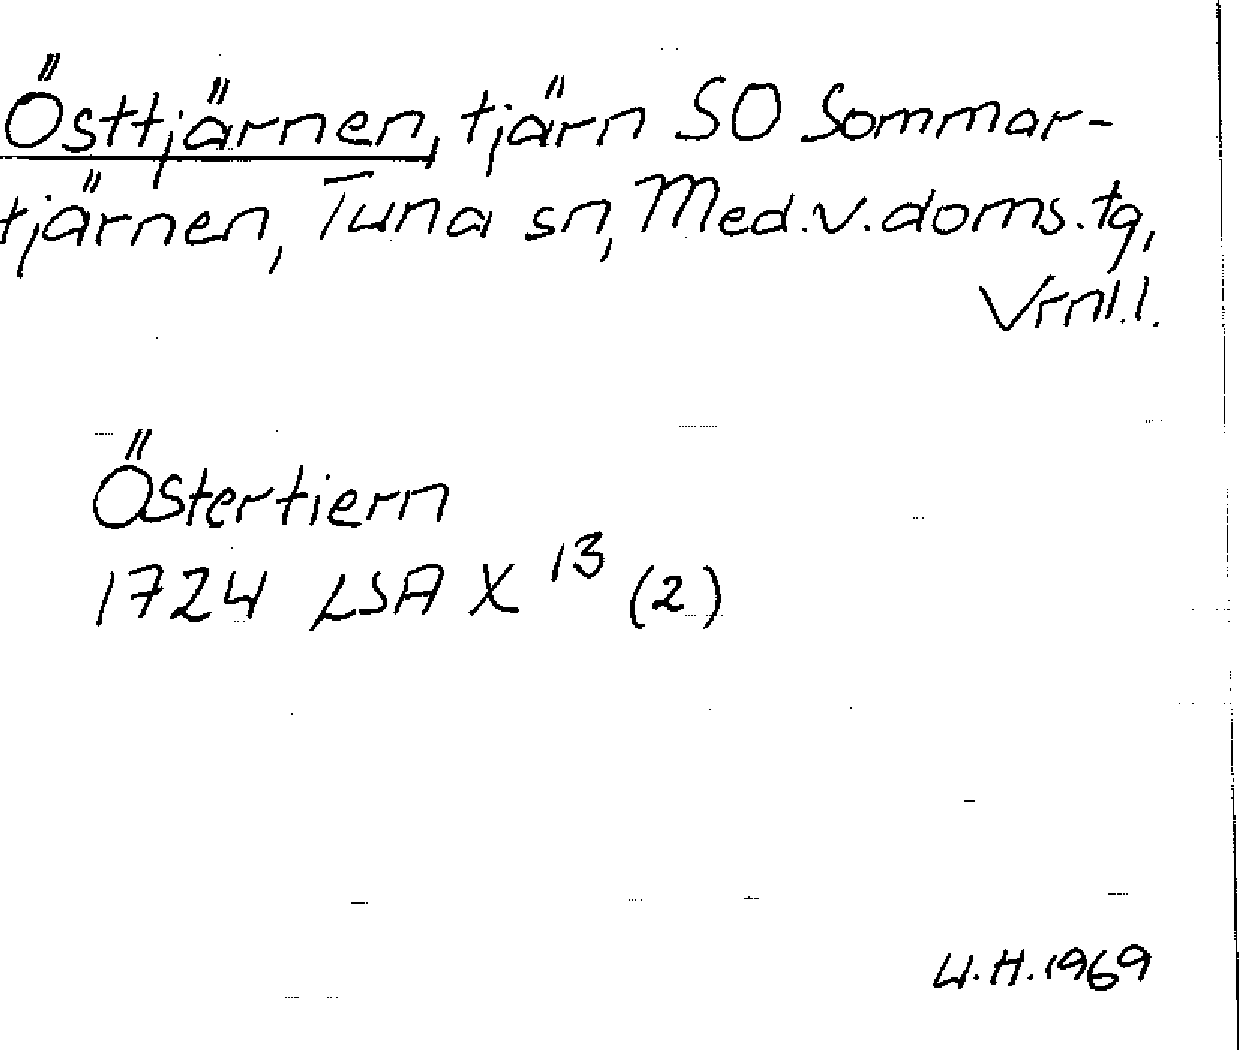 Östtjärnen, tjärn SO Sommar-
tjärnen, Tuna sn, Med.v.doms.tg,
Vrnl.l.
Östertiern
1724 LSA X 13 (2)
U.H.1969